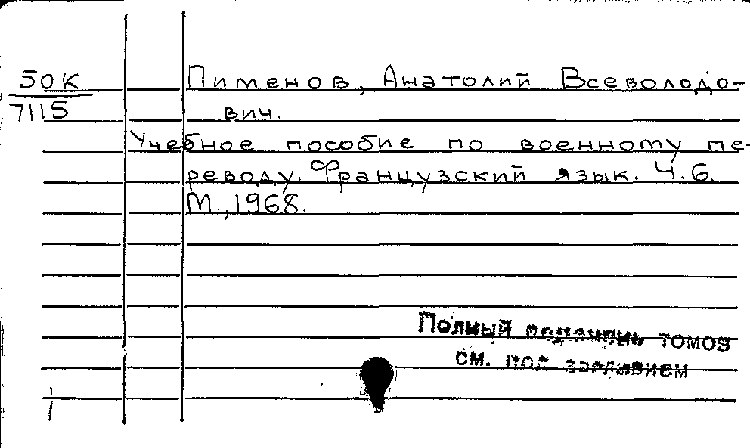 50К
7115
Пименов, Анатолий Всеволодо-
вич.
Учебное пособие по военному пе-
реводу. Французский язык. Ч. 6.
М., 1968.
Полный перечень томов
см. под заглавием